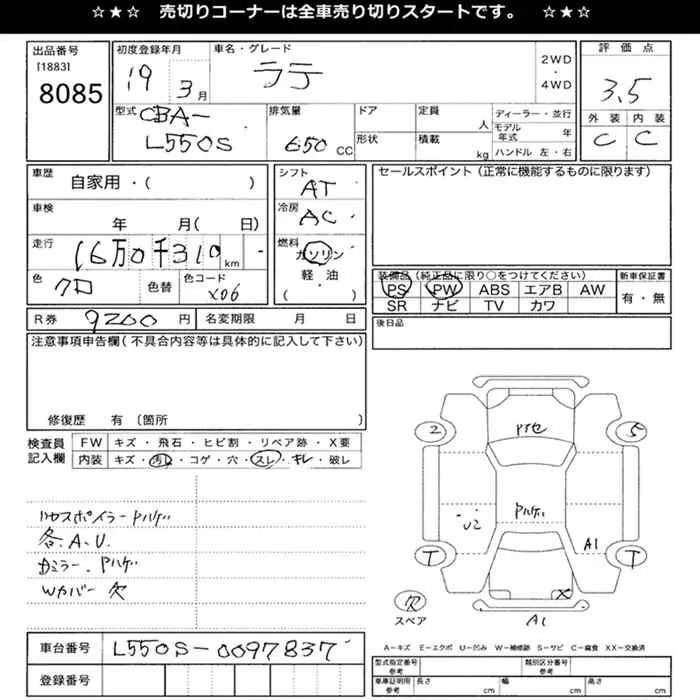 ☆★☆ 売切りコーナーは全車売り切りスタートです。 ☆★☆
出品番号
[1883]
8085
初度登録年月
19
3月
車名・グレード
ラテ
2WD
・
4WD
評価点
3.5
外装 内装
C C
型式
CBA-
L550S
排気量
650 CC
ドア
形状
定員
人
積載
kg
ディーラー・並行
モデル年式 年
ハンドル 左・右
車歴
自家用・( )
車検
年 月( 日)
走行
16万0千310 km
色
クロ
色替
色コード
X06
シフト
AT
冷房
AC
燃料
ガソリン
軽・油
( )
セールスポイント(正常に機能するものに限ります)
装備品(純正品に限り○をつけてください)
PS PW ABS エアB AW
SR ナビ TV カワ
新車保証書
有・無
R券 9200 円
名変期限 月 日
後日品
注意事項申告欄(不具合内容等は具体的に記入して下さい)
修復歴 有 〔箇所
検査員
記入欄
FW キズ・飛石・ヒビ割・リペア跡・X要
内装 キズ・汚れ・コゲ・穴・スレ・キレ・破レ
リヤスポイラーPハゲ
各A.U.
ドミラー.Pハゲ
Wカバー 欠
2
5
Pハゲ
U2
A1
T
T
X
A1
欠
スペア
A−キズ E−エクボ U−凹み W−補修跡 S−サビ C−腐食 XX−交換済
車台番号
L550S-0097837
登録番号
型式指定番号
参考
類別区分番号
参考
車庫証明用
参考
長さ cm
幅 cm
高さ cm